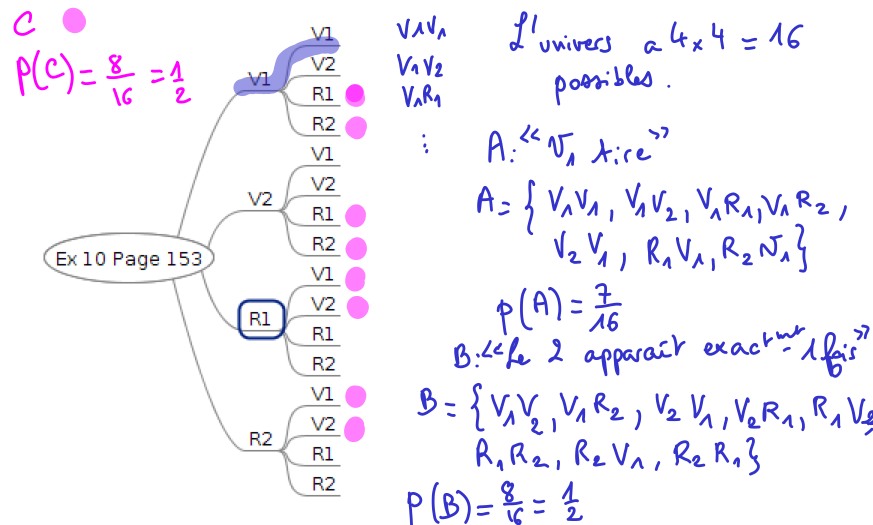 C
P(C) = 8/16 = 1/2
Ex 10 Page 153
V1
V1
V2
R1
R2
V2
V1
V2
R1
R2
R1
V1
V2
R1
R2
R2
V1
V2
R1
R2
V1V1
V1V2
V1R1
⋮
L'univers a 4 x 4 = 16
possibles.
A: « V1 tirée »
A = { V1V1, V1V2, V1R1, V1R2,
V2V1, R1V1, R2V1}
p(A) = 7/16
B: « Le 2 apparaît exactmt 1 fois »
B = { V1V2, V1R2, V2V1, V2R1, R1V2,
R1R2, R2V1, R2R1}
P(B) = 8/16 = 1/2